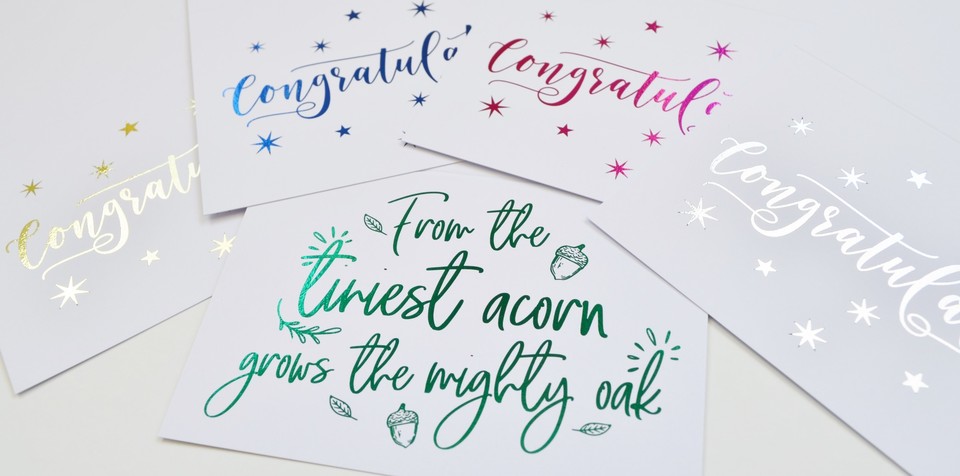 Congratul
Congratul
Congratu
Congratula
From the
tiniest acorn
grows the mighty oak